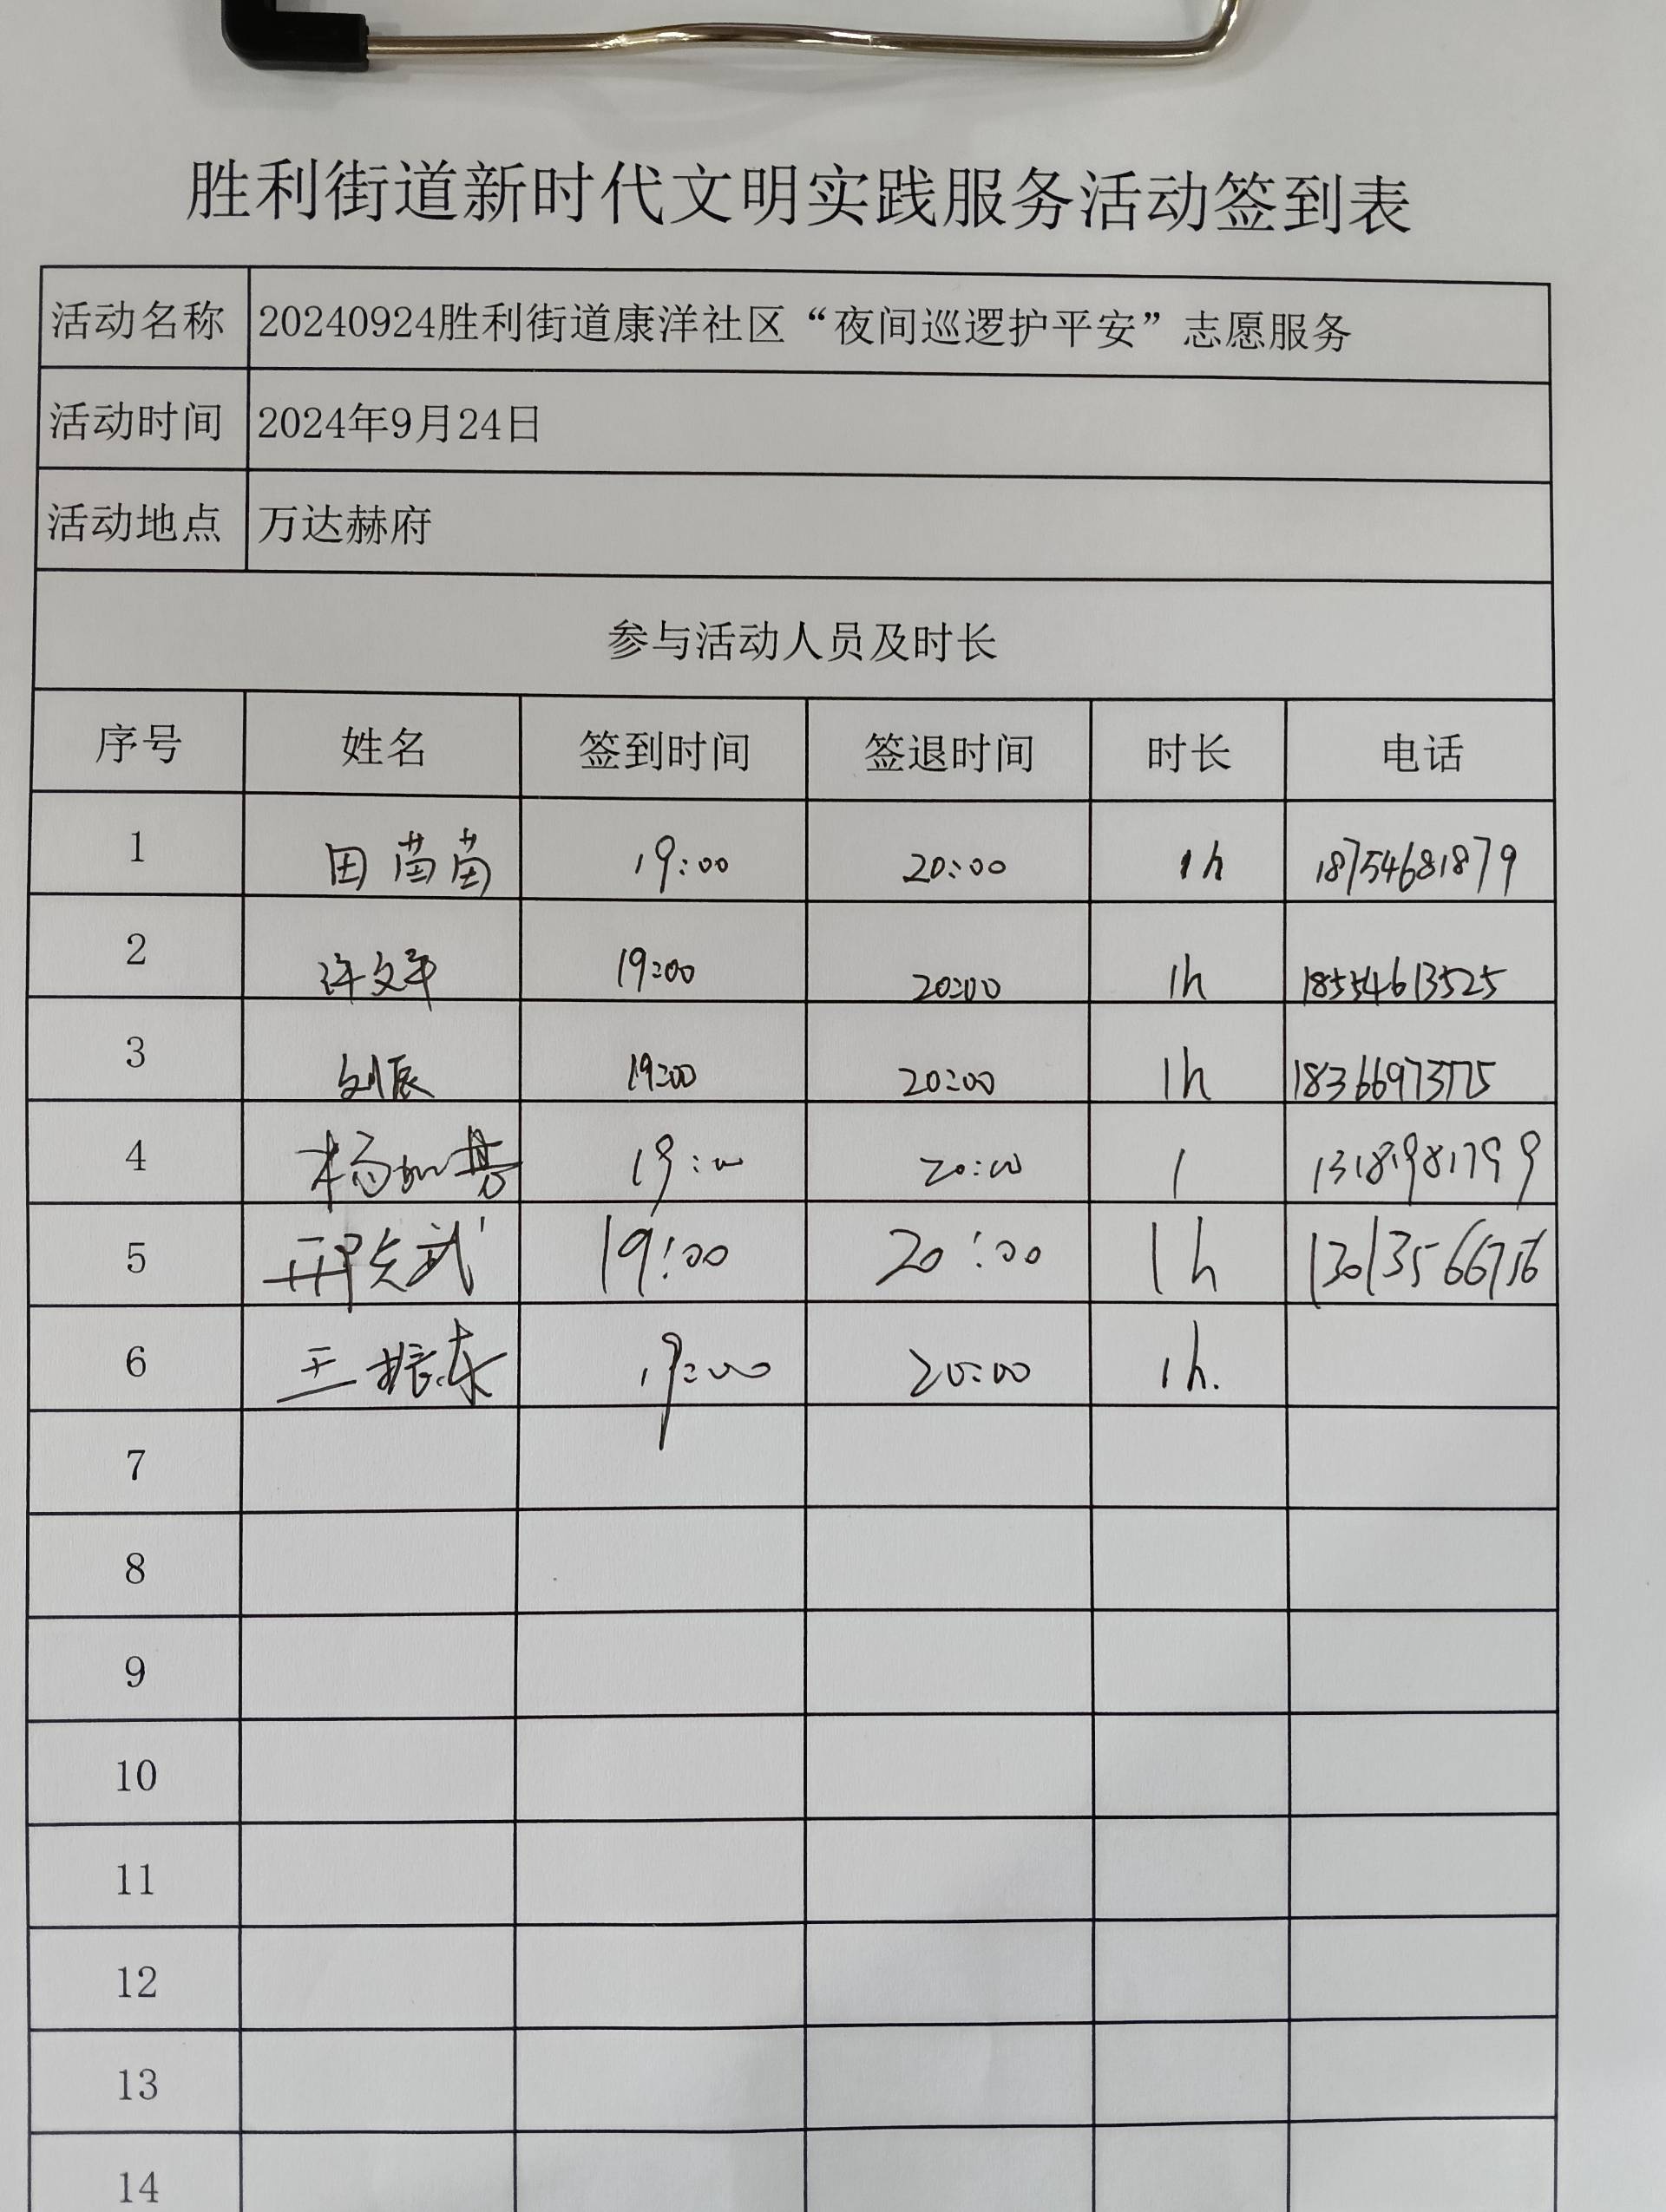 胜利街道新时代文明实践服务活动签到表
活动名称 20240924胜利街道康洋社区“夜间巡逻护平安”志愿服务
活动时间 2024年9月24日
活动地点 万达赫府
参与活动人员及时长
序号 姓名 签到时间 签退时间 时长 电话
1 田苗苗 19:00 20:00 1h 18754681879
2 许文平 19:00 20:00 1h 18554613525
3 刘辰 19:00 20:00 1h
4 19:00 20:00 1 13189981799
5 19:00 20:00 1h
6 王振东 19:00 20:00 1h.
7
8
9
10
11
12
13
14